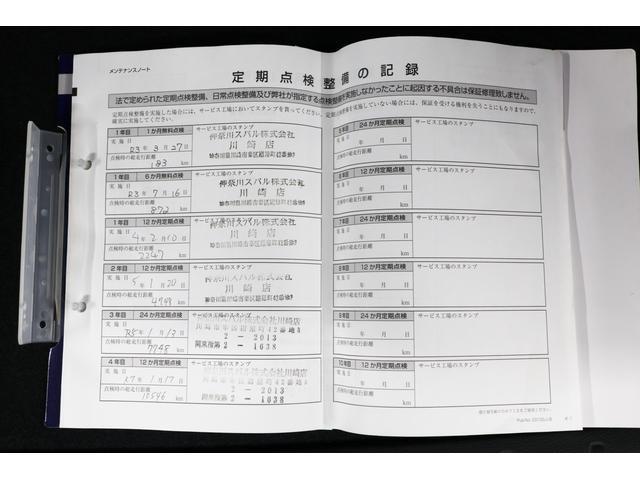 メンテナンスノート
定期点検整備の記録
法で定められた定期点検整備、日常点検整備及び弊社が指定する点検整備を実施しなかったことに起因する不具合は保証修理致しません。
定期点検整備を実施した場合には、サービス工場においてスタンプを貰ってください。定期点検整備を実施していない場合には、保証を受ける権利を失うことにもなりますので、
確実に実施してください。
1年目 1か月無料点検 サービス工場のスタンプ
実施日 R3年3月27日
点検時の総走行距離
183 km
神奈川スバル株式会社
川崎店
1年目 6か月無料点検 サービス工場のスタンプ
実施日 R3年7月16日
点検時の総走行距離
872 km
神奈川スバル株式会社
川崎店
1年目 12か月定期点検 サービス工場のスタンプ
実施日 4年2月10日
点検時の総走行距離
2247 km
神奈川スバル株式会社
川崎店
2年目 12か月定期点検 サービス工場のスタンプ
実施日 5年1月20日
点検時の総走行距離
km
神奈川スバル株式会社
川崎店
3年目 24か月定期点検 サービス工場のスタンプ
実施日
点検時の総走行距離
7748 km
神奈川スバル株式会社川崎店
2-2013
関東指第2-1638
4年目 12か月定期点検 サービス工場のスタンプ
実施日 R7年1月17日
点検時の総走行距離
10546 km
神奈川スバル株式会社川崎店
2-2013
関東指第2-1638
24か月定期点検 サービス工場のスタンプ
年 月 日
点検時の総走行距離
km
12か月定期点検 サービス工場のスタンプ
年 月 日
点検時の総走行距離
km
7年目 24か月定期点検 サービス工場のスタンプ
実施日 年 月 日
点検時の総走行距離
km
12か月定期点検 サービス工場のスタンプ
実施日 年 月 日
点検時の総走行距離
km
9年目 24か月定期点検 サービス工場のスタンプ
実施日 年 月 日
点検時の総走行距離
km
10年目 12か月定期点検 サービス工場のスタンプ
実施日 年 月 日
点検時の総走行距離
km